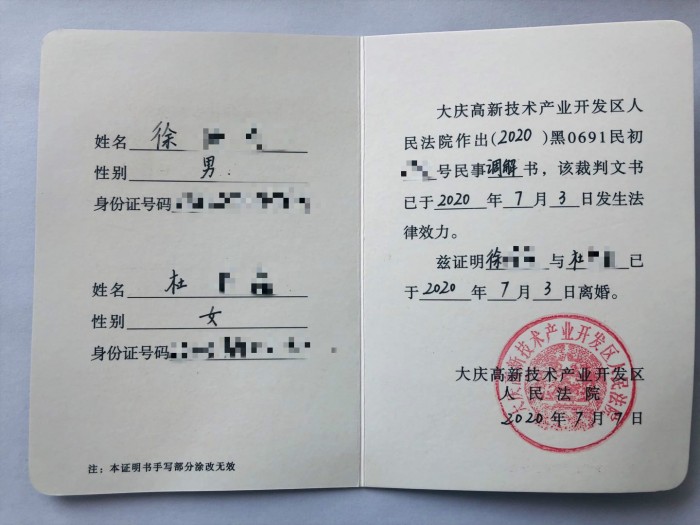 姓名 徐
性别 男
身份证号码
姓名 杜
性别 女
身份证号码
注：本证明书手写部分涂改无效
大庆高新技术产业开发区人
民法院作出(2020)黑0691民初
号民事调解书，该裁判文书
已于2020年7月3日发生法
律效力。
兹证明徐 与杜 已
于2020年7月3日离婚。
大庆高新技术产业开发区
人民法院
2020年7月7日
大庆高新技术产业开发区人民法院